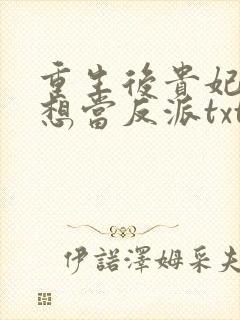 重生後貴妃
想當反派txt
伊諾澤姆采夫